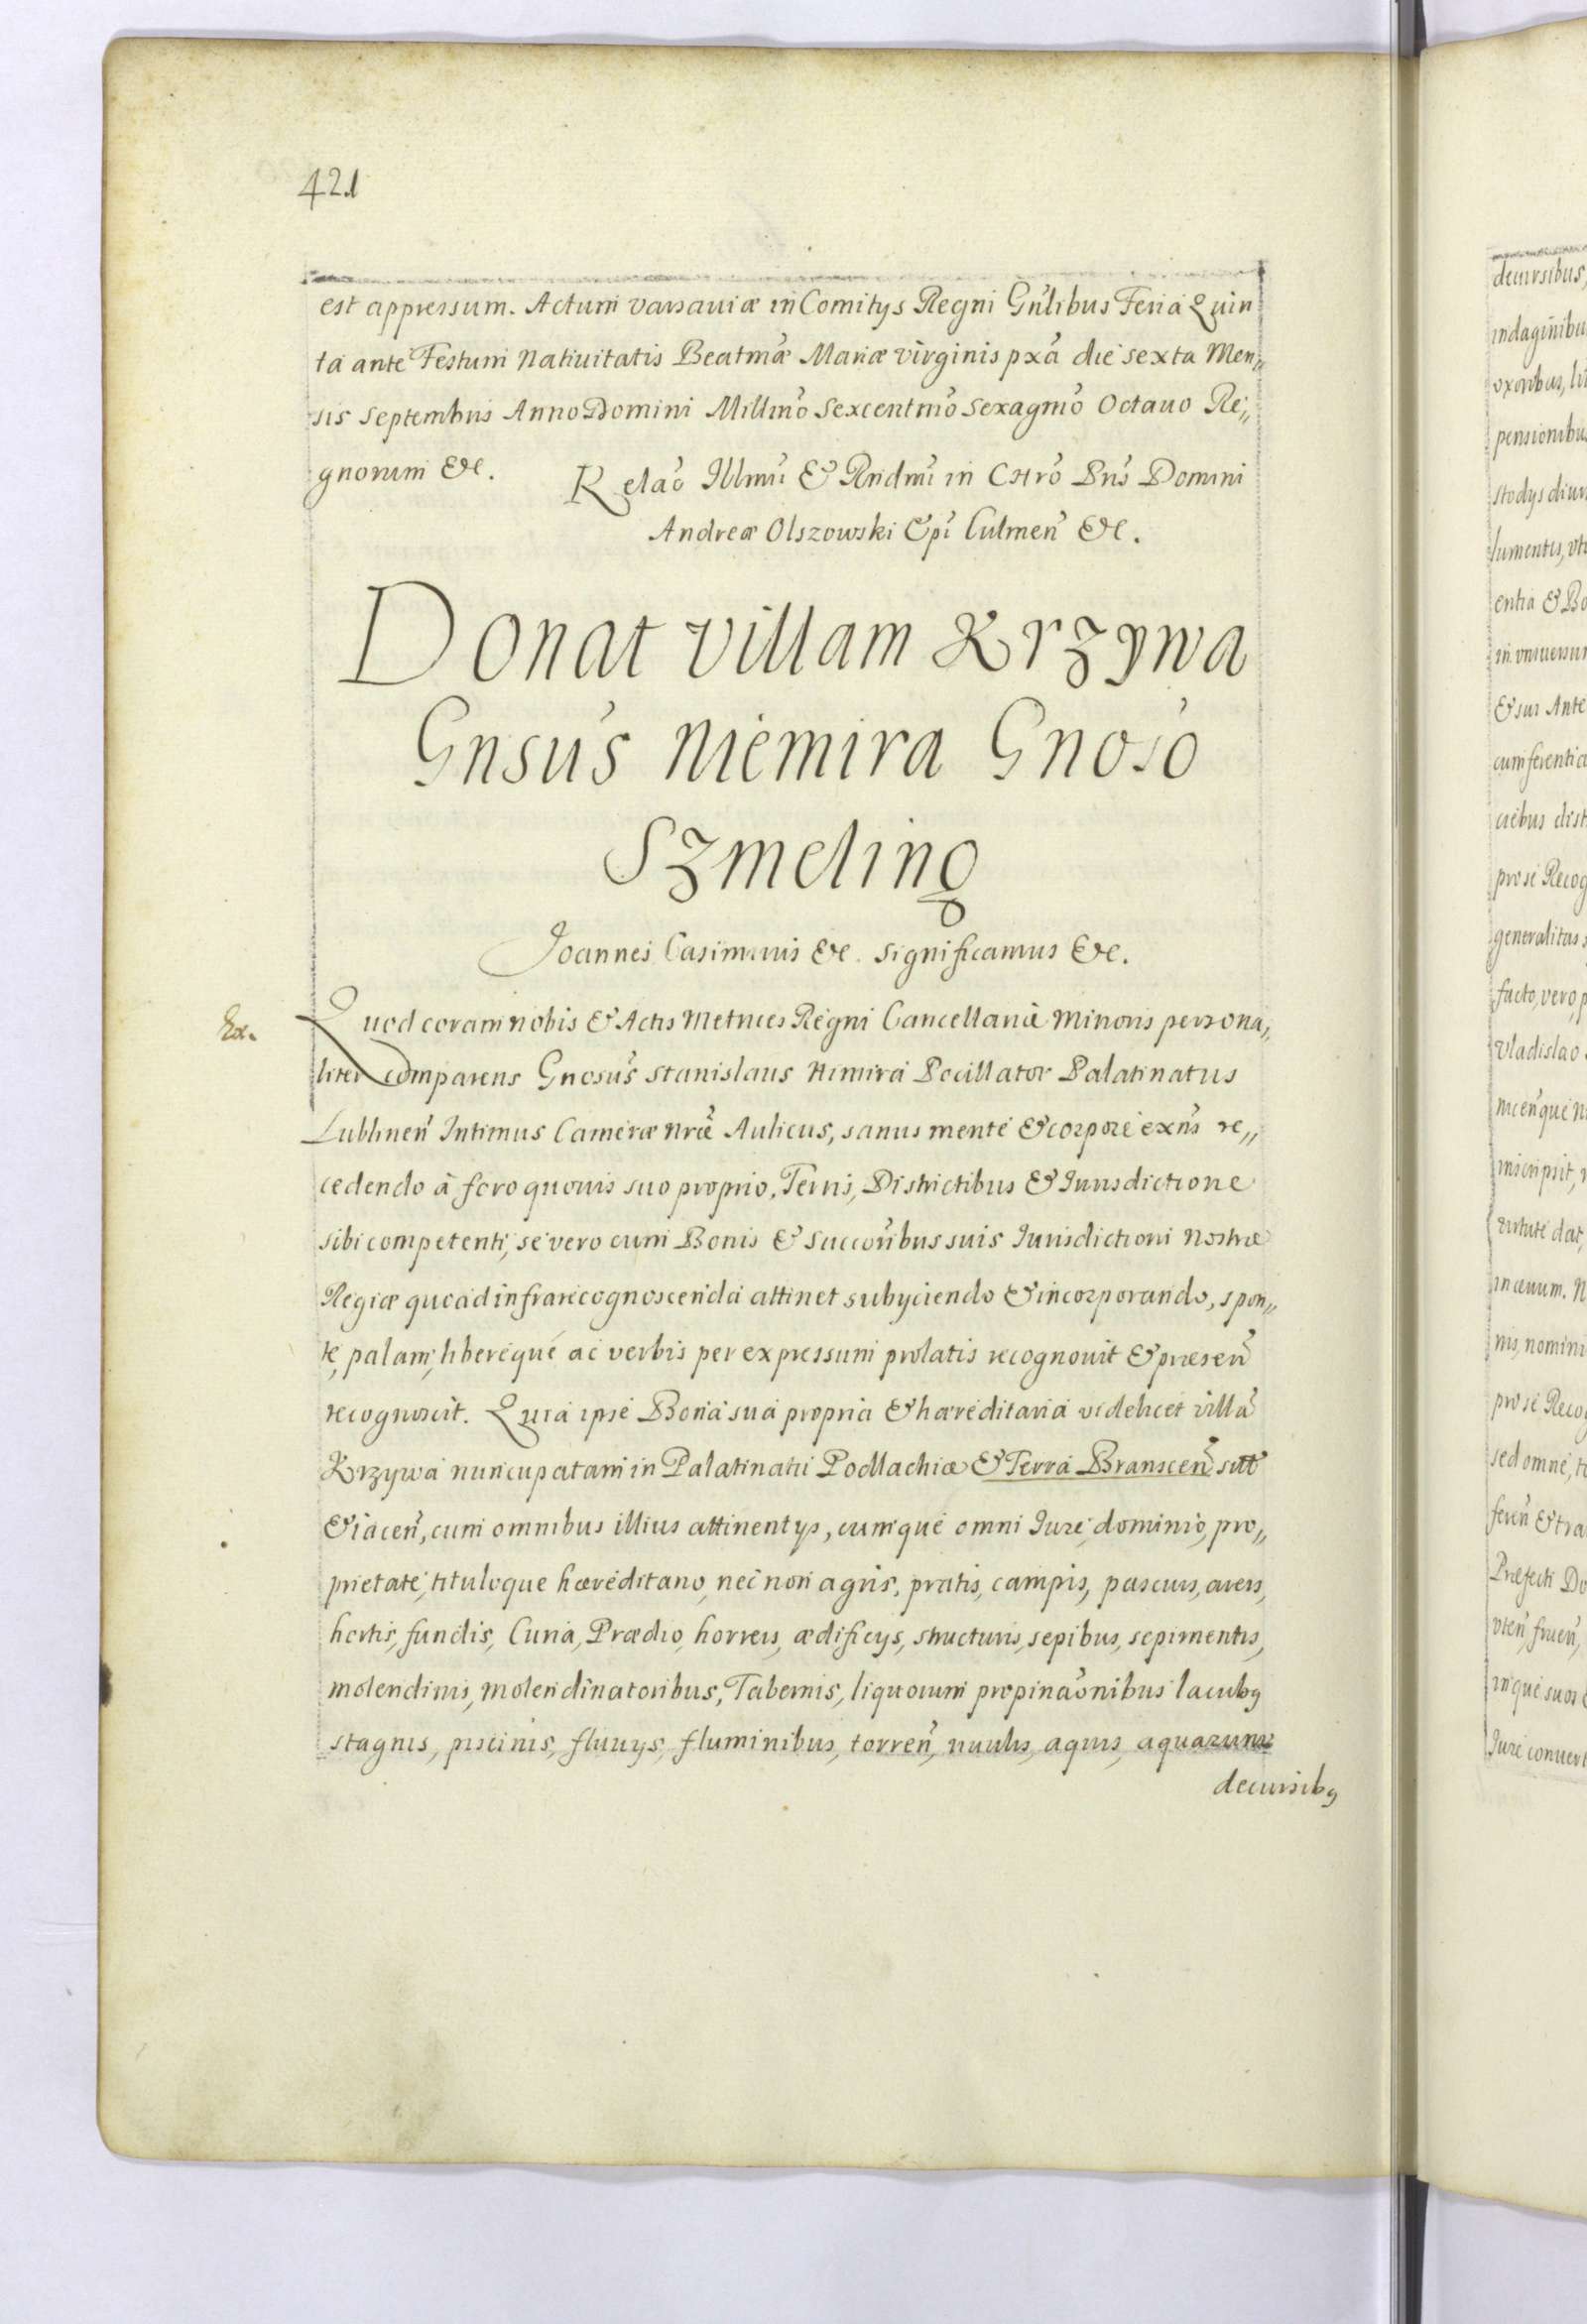 421
est appressum. Actum Varsaviæ in Comitÿs Regni Gñlibus Feria Quin
ta ante Festum Nativitatis Beatmæ̃ Mariæ Virginis pxã die sexta Men„
sis Septembris Anno Domini Millmõ Sexcentmõ Sexagmõ Octavo Re„
gnorum &c.
Relaõ Illmi̇̃ & Rndmi̇̃ in Chrõ Pris̃ Domini
Andreæ Olszowski Epĩ Culmeñ &c.
Donat villam Krzywa
Gnsũs Niemira Gnosõ
Szmeling
Joannes Casimirus &c. Significamus &c.
Ex.
Quod coram nobis & Actis Metrices Regni Cancellariæ Minoris persona„
liter comparens Gnosũs Stanislaus Nimira Pocillator Palatinatus
Lublineñ Intimus Cameræ nræ̃ Aulicus, sanus mente & corpore exñs re„
cedendo à foro quovis suo proprio, Terris, Districtibus & Iurisdictione
sibi competenti, se vero cum Bonis & Succoñbus suis Iurisdictioni Nostræ
Regiæ quoad infrarecognoscenda attinet subÿciendo & incorporando, spon„
te, palam, libereque ac verbis per expressum prolatis recognovit & præseñ
recognoscit. Quia ipse Bona sua propria & hæreditaria videlicet villã
Krzywa nuncupatam in Palatinatu Podlachiæ & Terra Bransceñ sit̃
& iaceñ, cum omnibus illius attinentÿs, cumque omni Iure, dominio, pro„
prietate, tituloque hæreditario, nec non agris, pratis, campis, pascuis, areis,
hortis, fundis, Curia, Prædio, horreis, ædificÿs, structuris, sepibus, sepimentis,
molendinis, molendinatoribus, Tabernis, liquorum propinaõnibus lacubꝫ
stagnis, piscinis, fluvÿs, fluminibus, torreñ, rivulis, aquis, aquarum
decursibꝫ
decursibus,
indaginibu
pensionibus
stodÿs diur
lumentis, uti
entia & Bo
in universum
& sui Ante
cumferentia
ciebus dist
pro se Recog
generalitas s
facto, vero, p
Vladislao
inscripsit,
virtute dat,
in ævum. N
nis, nomini
pro se Recog
sed omne,
Præfecti Do
Iure convert